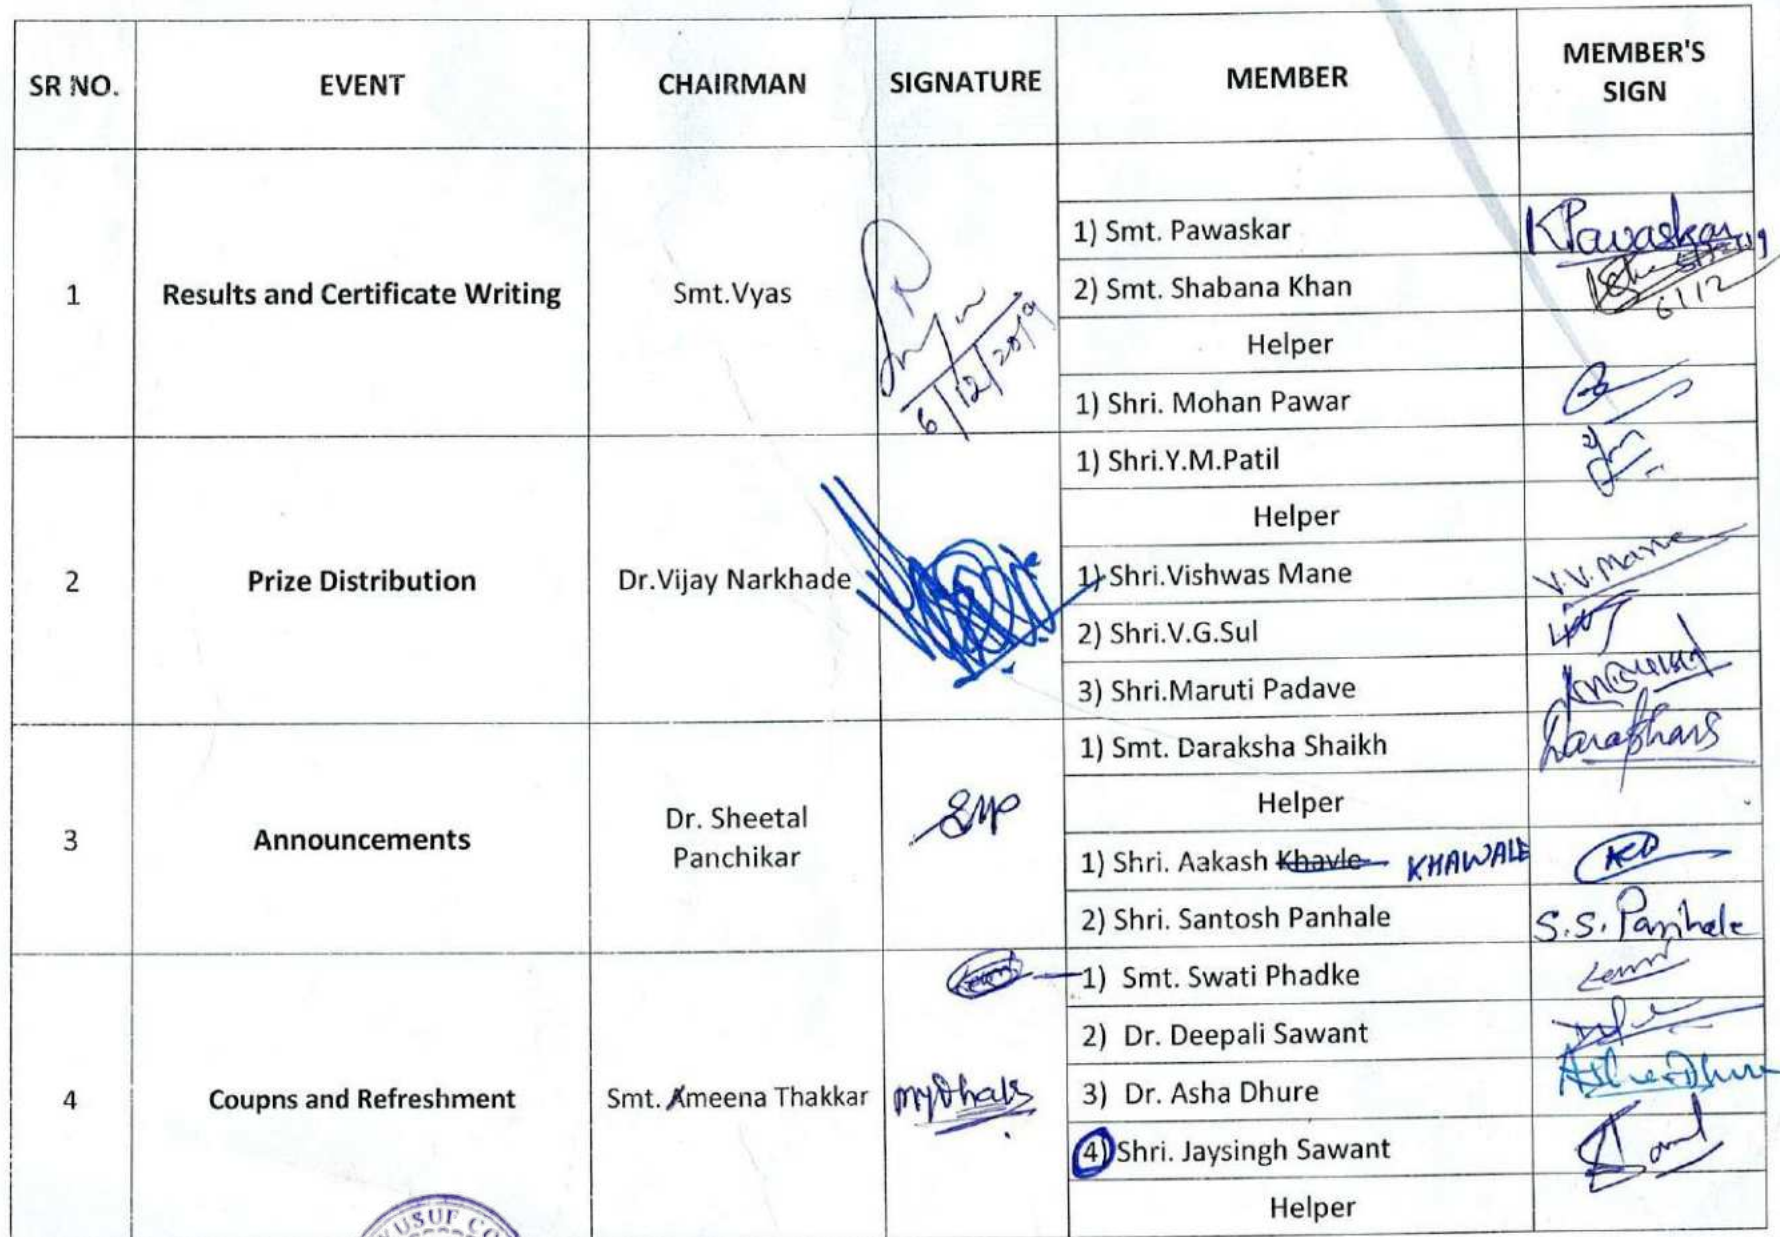 SR NO. EVENT CHAIRMAN SIGNATURE MEMBER MEMBER'S SIGN
1 Results and Certificate Writing Smt.Vyas 6/12/2019
1) Smt. Pawaskar KPawaskar
2) Smt. Shabana Khan 6/12
Helper
1) Shri. Mohan Pawar
2 Prize Distribution Dr.Vijay Narkhade
1) Shri.Y.M.Patil
Helper
1) Shri.Vishwas Mane V.V. Mane
2) Shri.V.G.Sul
3) Shri.Maruti Padave
3 Announcements Dr. Sheetal Panchikar
1) Smt. Daraksha Shaikh
Helper
1) Shri. Aakash Khavle KHAWALE
2) Shri. Santosh Panhale S.S. Panhale
4 Coupns and Refreshment Smt. Ameena Thakkar
1) Smt. Swati Phadke
2) Dr. Deepali Sawant
3) Dr. Asha Dhure AshaDhure
4) Shri. Jaysingh Sawant
Helper
YUSUF CO